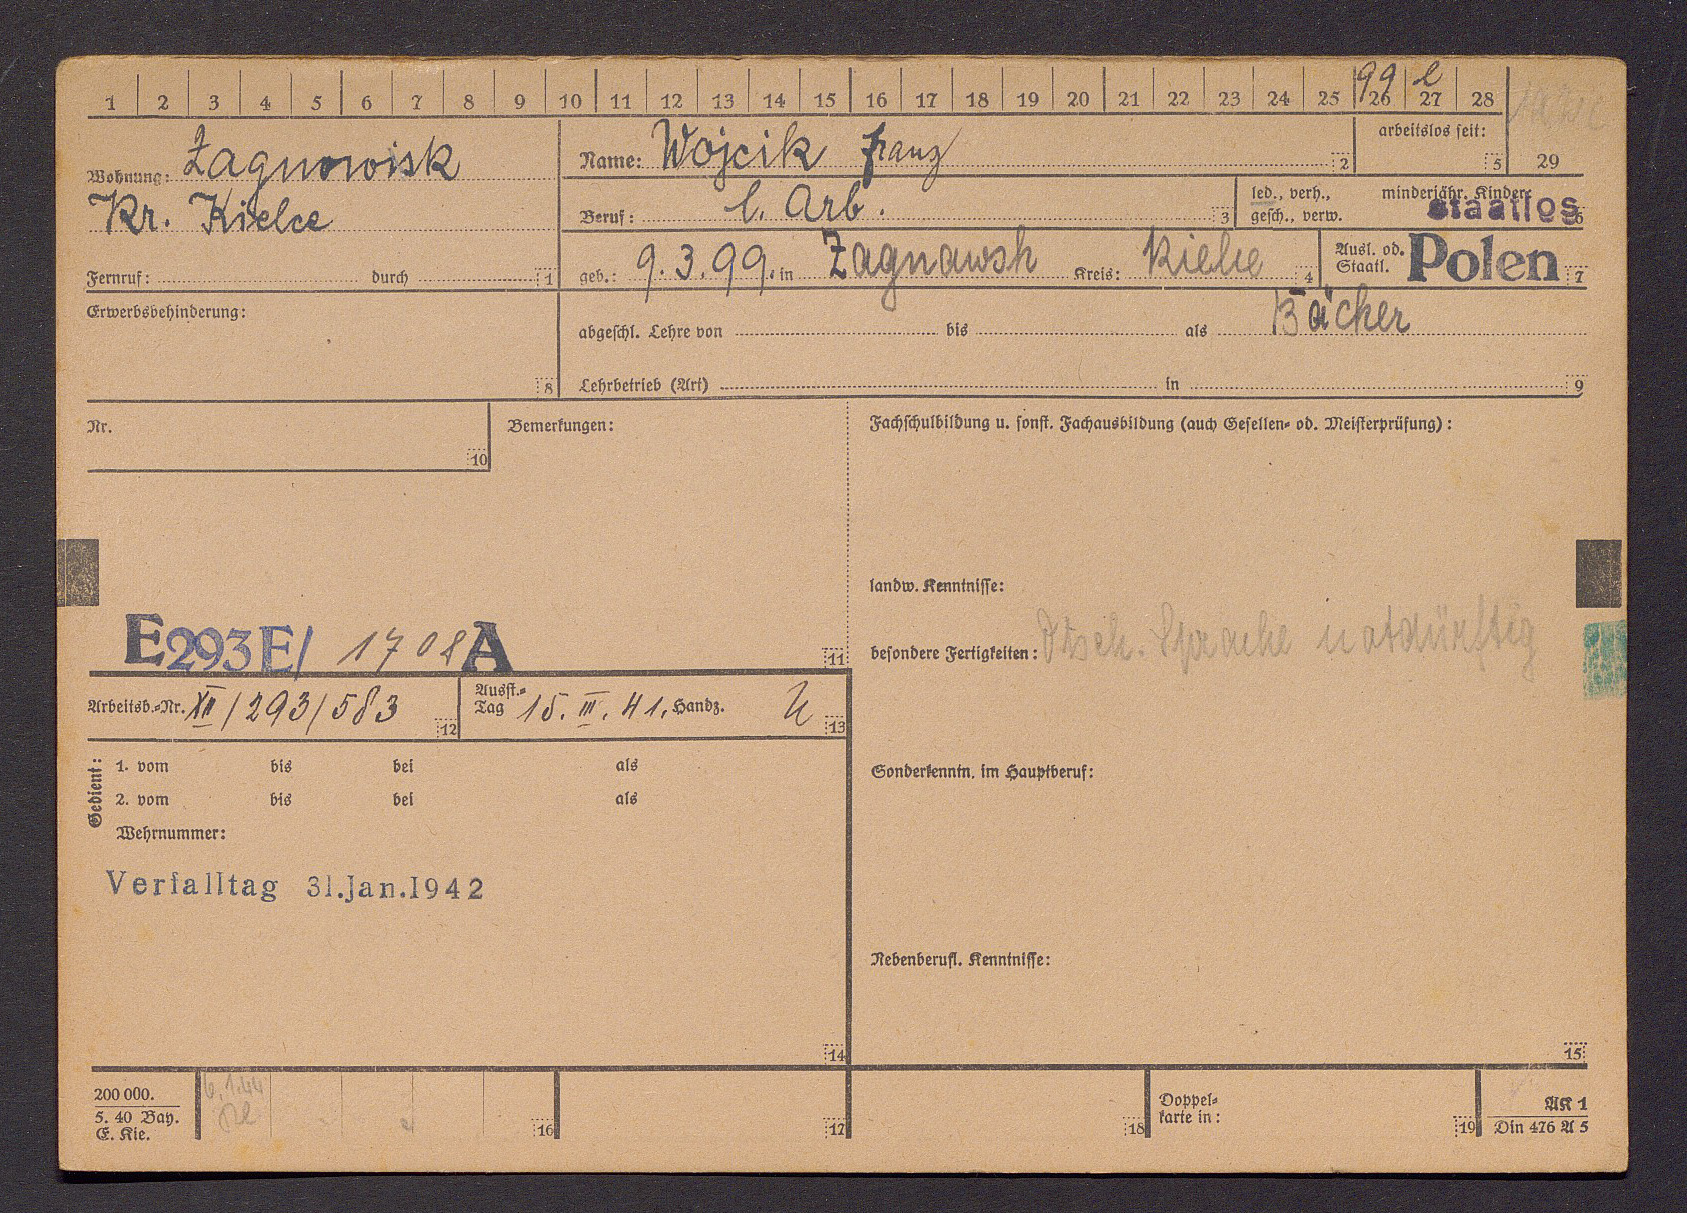 1 2 3 4 5 6 7 8 9 10 11 12 13 14 15 16 17 18 19 20 21 22 23 24 25 26 27 28 29
99 l
Wohnung: Zagnowisk
Kr. Kielce
Fernruf: durch 1
Name: Wojcik Franz 2
arbeitslos seit: 5
Beruf: l. Arb. 3
led., verh., minderjähr. Kinder:
gesch., verw. 6
staatlos
geb.: 9.3.99. in Zagnawsk Kreis: Kielce 4
Ausl. od.
Staatl. Polen 7
Erwerbsbehinderung: 8
abgeschl. Lehre von bis als Bäcker
Lehrbetrieb (Art) in 9
Nr. 10
Bemerkungen:
Fachschulbildung u. sonst. Fachausbildung (auch Gesellen- od. Meisterprüfung):
landw. Kenntnisse:
E293E/ 1708 A 11
besondere Fertigkeiten: Dtsch. Sprache notdürftig
Arbeitsb.-Nr. XII/293/583 12
Ausst.-
Tag 15.III.41. Handz. 13
Gedient:
1. vom bis bei als
2. vom bis bei als
Wehrnummer:
Sonderkenntn. im Hauptberuf:
Verfalltag 31.Jan.1942
Nebenberufl. Kenntnisse:
14 15
200 000.
5. 40 Bay.
E. Kie.
6.1.44
16 17 18
Doppel-
karte in: 19
AK 1
Din 476 A 5